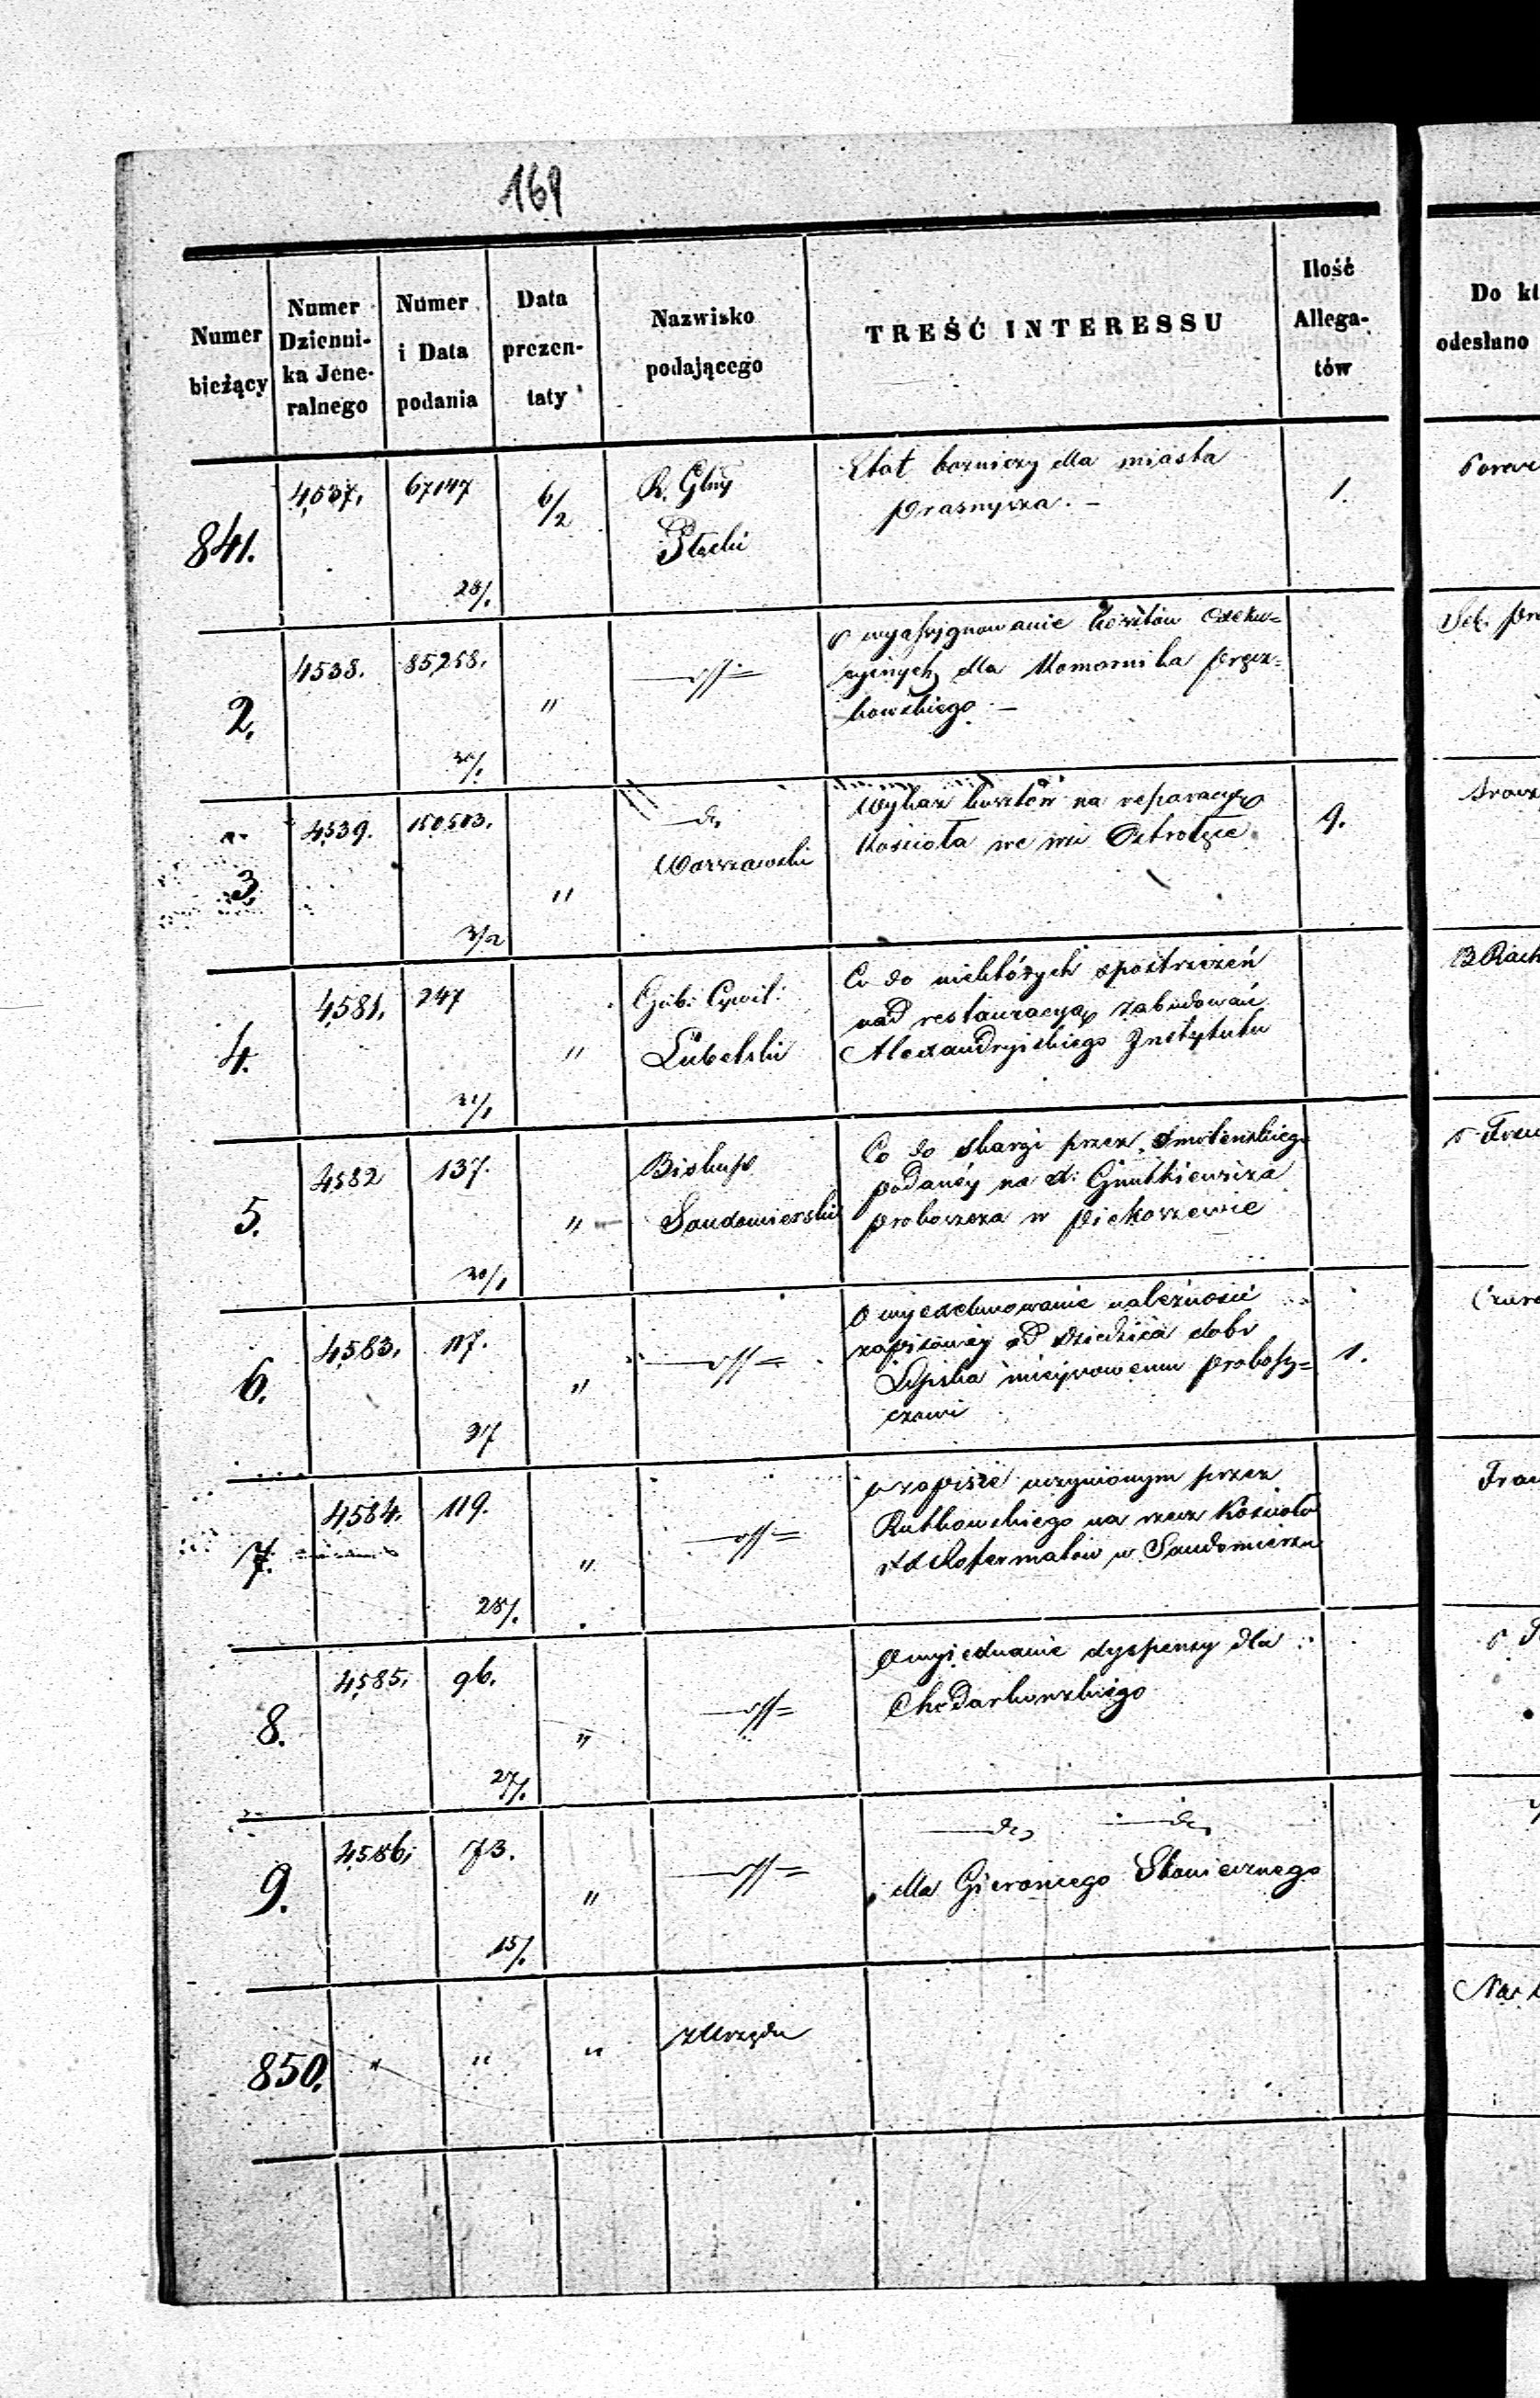 169
Numer bieżący
Numer Dzienni-
ka Jene-
ralnego
Numer i Data podania
Data prezen-
taty
Nazwisko podającego
TREŚĆ INTERESSU
Ilość Allega-
tów
Do kt
odesłano
841. 4537. 67147 28/1 6/2 R. Gbny
Płocki
Etat bożniczy dla miasta
Prasnysza. –
1.
2. 4538. 85258. " –//=
o wyassygnowanie kosztów exeku=
cyinych dla Komornika
kowskiego. –
3 4539. 150503. 3/2 " do
Warszawski
Wykaz kosztów na reparacyą
Kościoła we wsi Ostrołęce
9.
4. 4581. 247 31/1 " Gub: Cywil:
Lubelski
Co do niektórych spostrzeżeń
nad restauracyą zabudowań
Alexandryiskiego Instytutu
B Rach
5. 4582 137. 30/1 " Biskup
Sandomierski
Co do skargi przez Smoleńskiego
podanéy na X: Gnutkiewicza
proboszcza w Piekoszewie
6. 4583. 117. 27 " –//=
O wyexekwowanie należności
zapisowéy od dziedzica dóbr
Lipska mieyscowemu probosz=
czowi
1.
7. 4584. 119. 28/1 " –//=
o zapisie uczynionym przez
Rutkowskiego na rzecz Kościoła
XX Reformatów w Sandomierzu
8. 4585. 96. 27/1 " –//=
O wyiednanie dyspensy dla
9. 4586. 73. 15/1 " –//=
do do
dla Słoniecznego
850. " " " z Urzędu